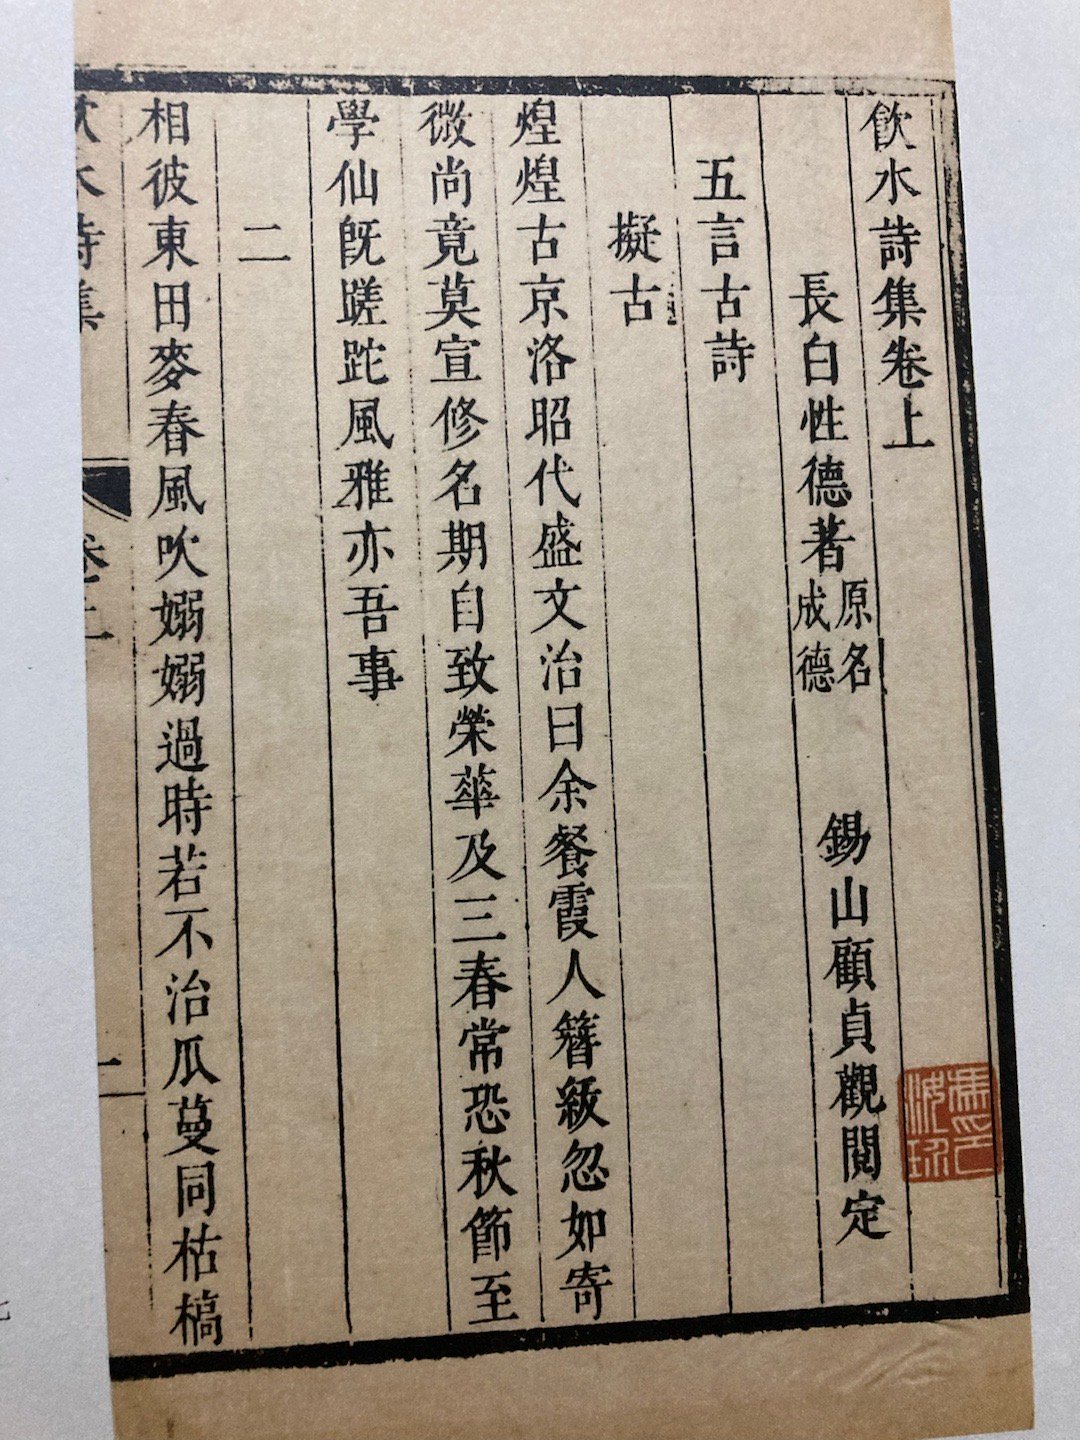 飲水詩集卷上
長白性德著 原名成德 錫山顧貞觀閱定
五言古詩
擬古
煌煌古京洛昭代盛文治日余餐霞人簪紱忽如寄
微尚竟莫宣修名期自致榮華及三春常恐秋節至
學仙旣蹉跎風雅亦吾事
二
相彼東田麥春風吹嫋嫋過時若不治瓜蔓同枯槁
飲水詩集
卷上
一